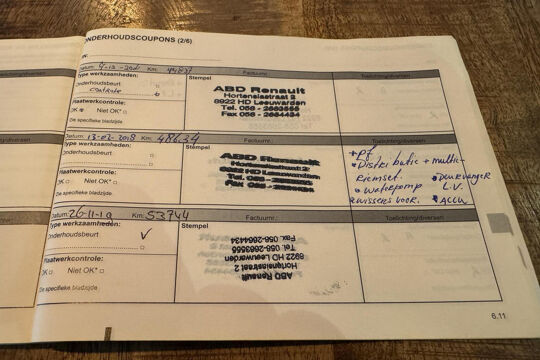 ONDERHOUDSCOUPONS (2/6)
Datum: Km: Factuurnr.: Toelichting/diversen
Type werkzaamheden:
Onderhoudsbeurt
controle
Plaatwerkcontrole:
OK Niet OK*
Zie specifieke bladzijde
Stempel
ABD Renault
Hortensiastraat 2
8922 HD Leeuwarden
Tel. 058 - 2663555
Fax 058 - 2664434
Datum: 13-02-2018 Km: 48634 Factuurnr.: Toelichting/diversen
Type werkzaamheden:
Onderhoudsbeurt
Plaatwerkcontrole:
OK Niet OK*
Zie specifieke bladzijde
Stempel
ABD Renault
Hortensiastraat 2
8922 HD Leeuwarden
+ pf
Distributie + multi-
Riemset.
Waterpomp
wissers voor.
L.V.
Accu
Datum: 26-11-19 Km: 53744 Factuurnr.: Toelichting/diversen
Type werkzaamheden:
Onderhoudsbeurt
Plaatwerkcontrole:
OK Niet OK*
Zie specifieke bladzijde
Stempel
ABD Renault
Hortensiastraat 2
8922 HD Leeuwarden
Tel. 058-2663555
Fax 058-2664434
6.11